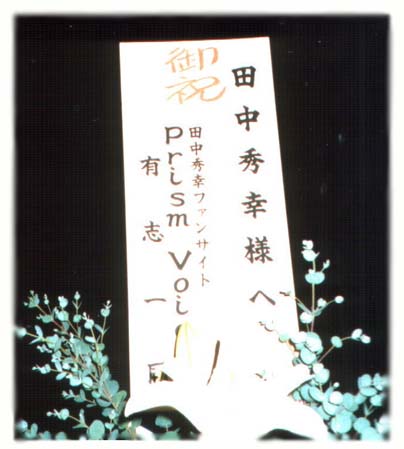 御祝
田中秀幸様へ
田中秀幸ファンサイト
Prism Voi
有志一